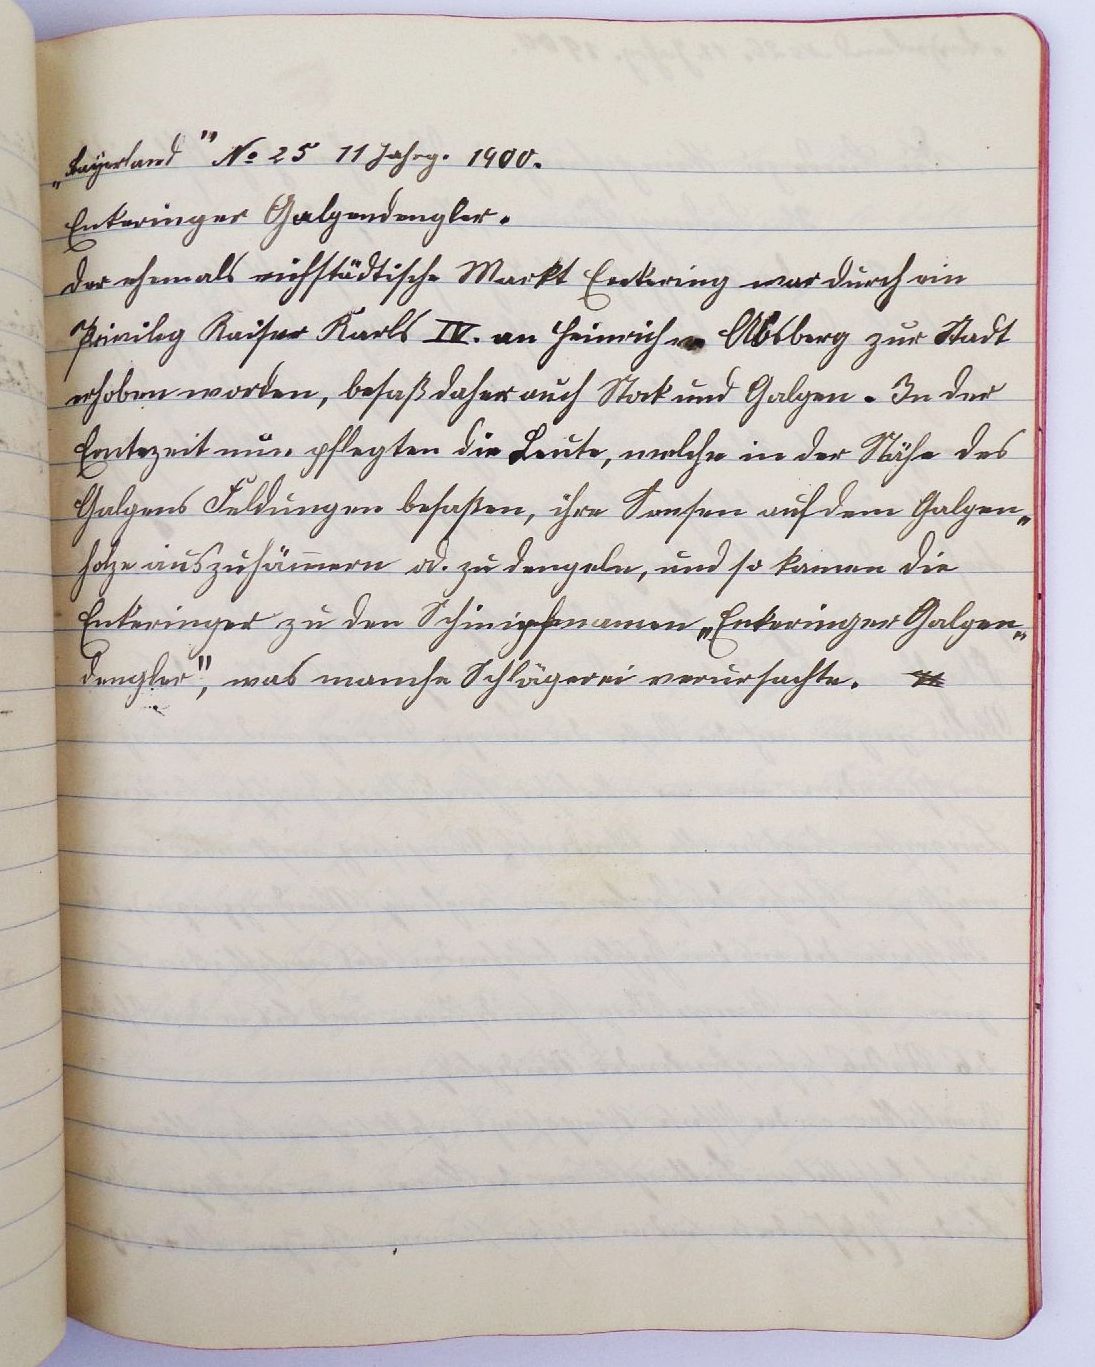 „Bayerland" No 25 11 Jahrg. 1900.
Enkeringer Galgendengler.
Der ehemals eichstädtische Markt Enkering war durch ein
Privileg Kaiser Karls IV. an Heinrich v. Absberg zur Stadt
erhoben worden, besaß daher auch Stock und Galgen. In der
Erntezeit nun pflegten die Leute, welche in der Nähe des
Galgens Feldungen besaßen, ihre Sensen auf dem Galgen„
holze auszuhämmern od. zu dengeln, und so kamen die
Enkeringer zu den Schimpfnamen „Enkeringer Galgen„
dengler", was manche Schlägerei verursachte.